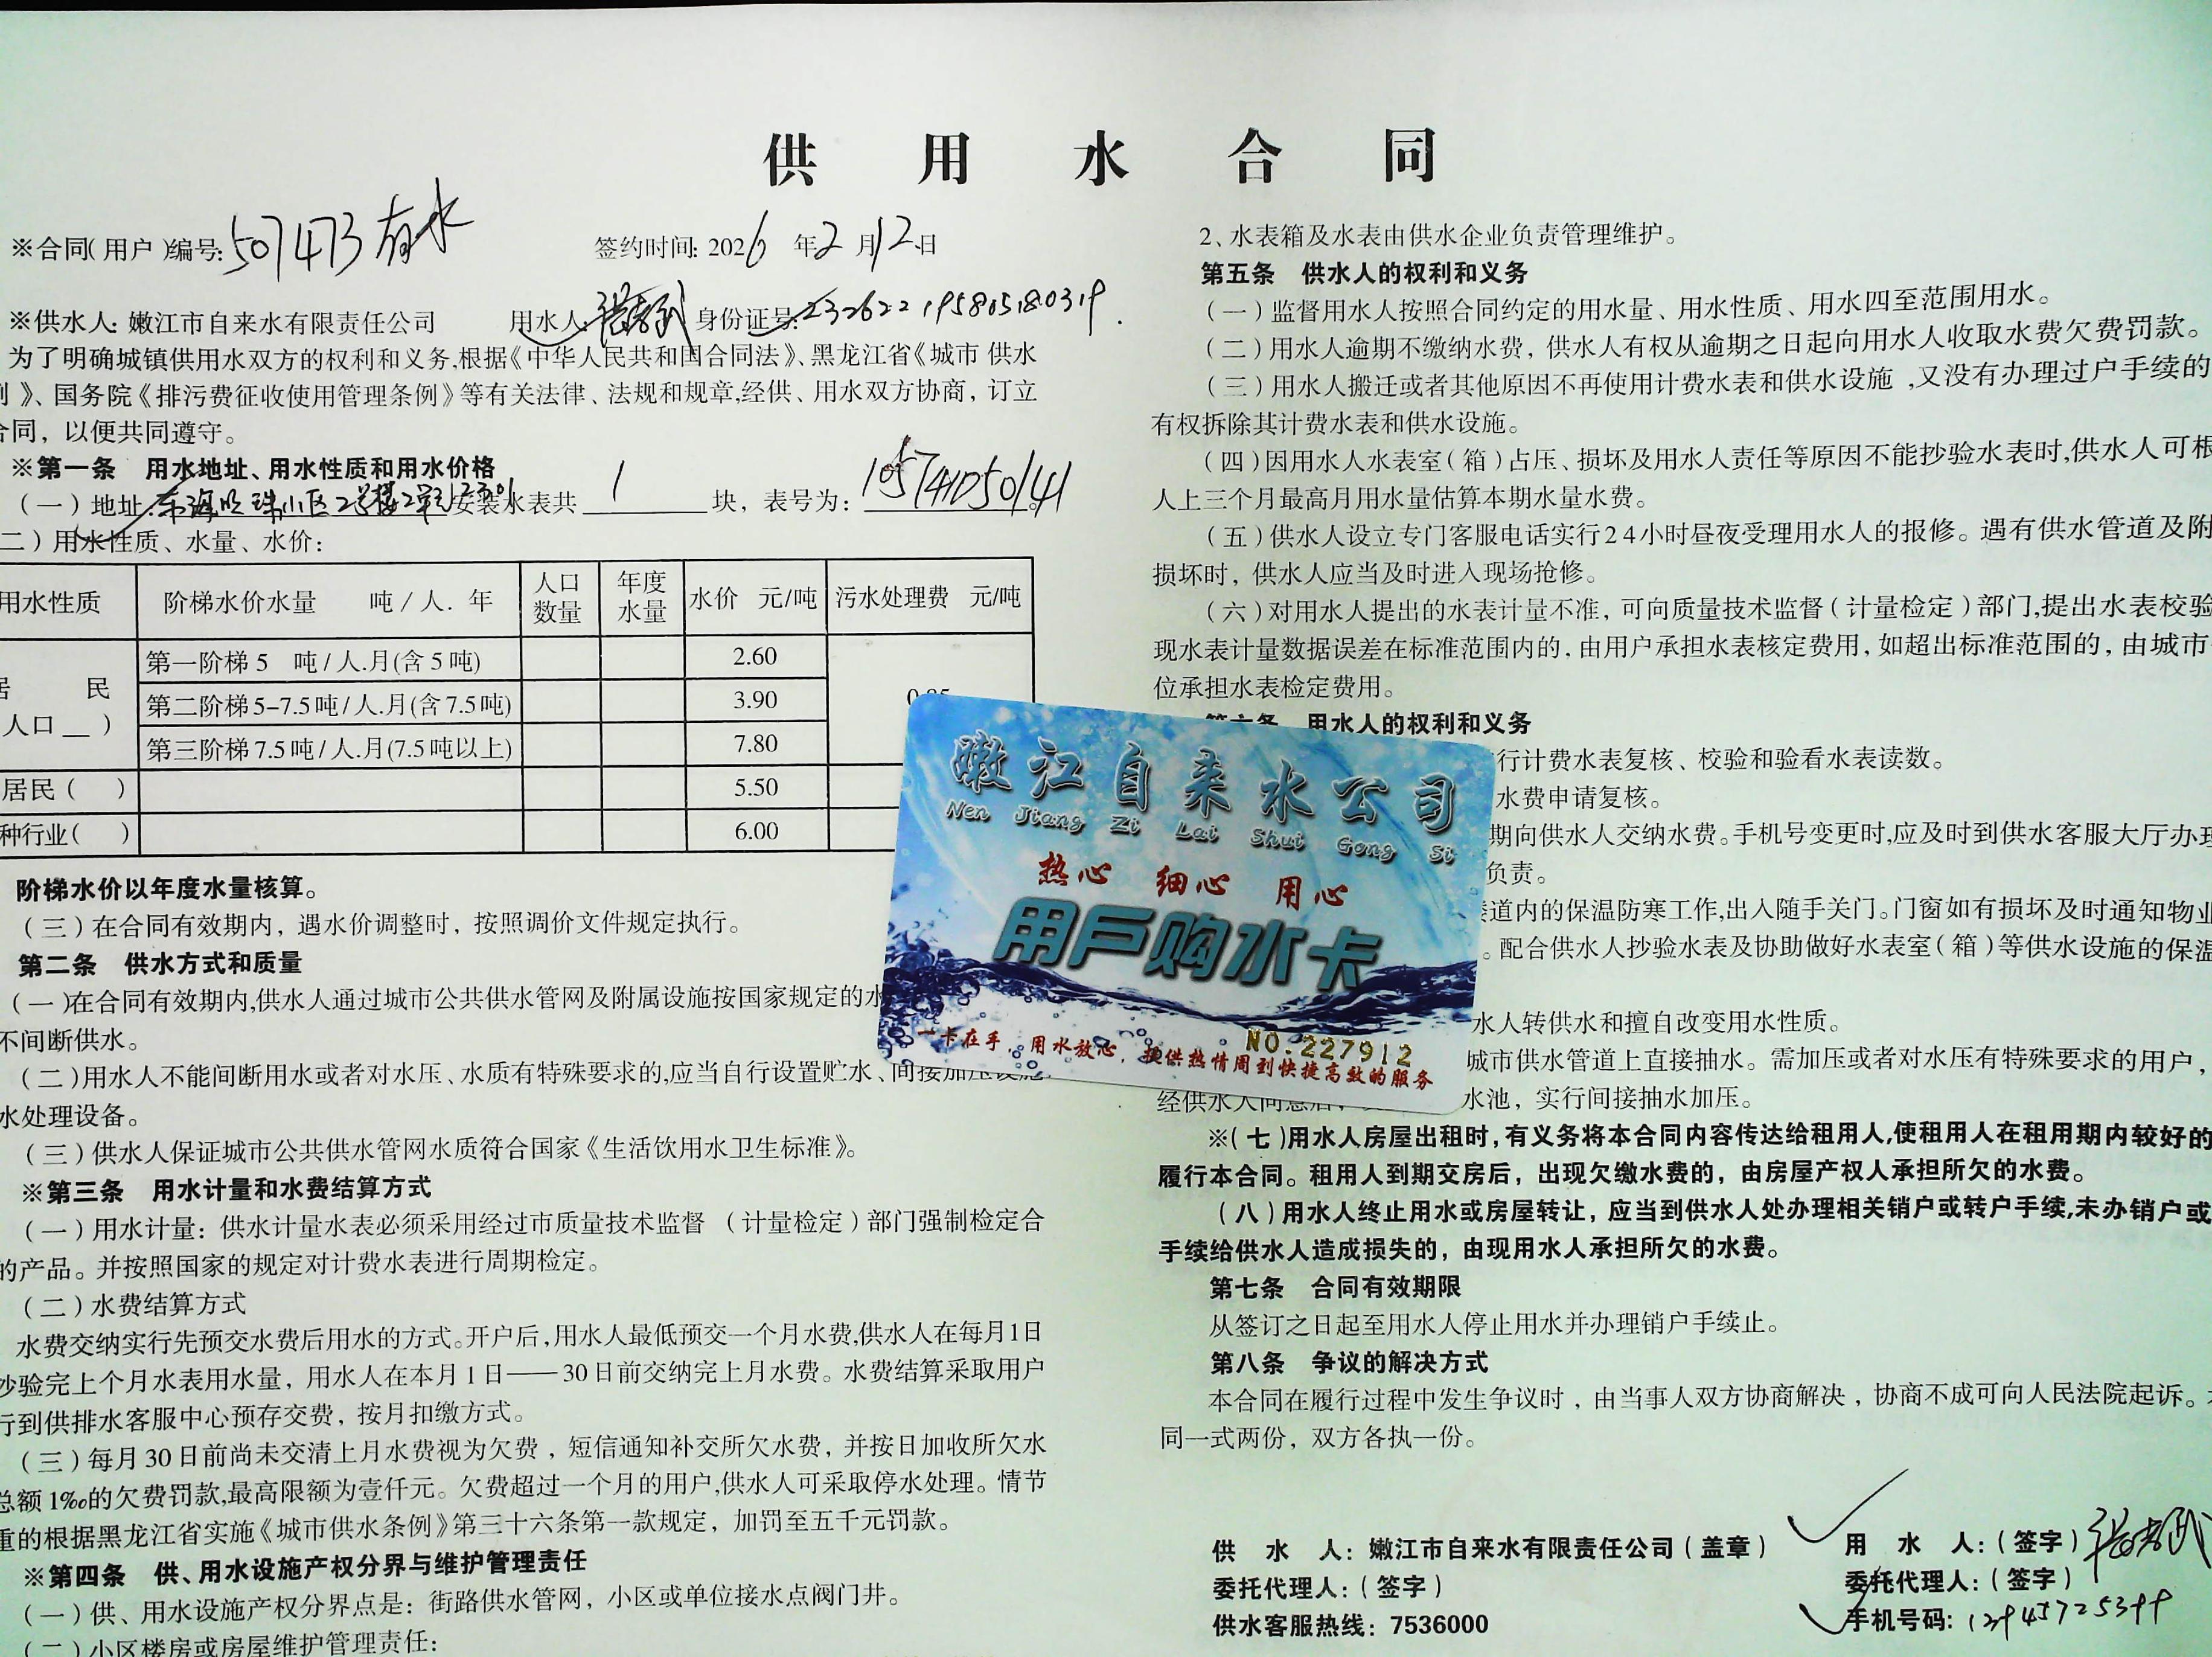 供 用 水 合 同
※合同(用户)编号: 507473 有水
签约时间: 2026 年 2 月 12 日
※供水人: 嫩江市自来水有限责任公司 用水人: 身份证号:
为了明确城镇供用水双方的权利和义务,根据《中华人民共和国合同法》、黑龙江省《城市 供水
》、国务院《排污费征收使用管理条例》等有关法律、法规和规章,经供、用水双方协商，订立
合同，以便共同遵守。
※第一条 用水地址、用水性质和用水价格
（一）地址: 小区2号楼2单元 安装水表共 1 块，表号为: 105741050141
二）用水性质、水量、水价:
用水性质 阶梯水价水量 吨/人. 年 人口数量 年度水量 水价 元/吨 污水处理费 元/吨
居 民
人口__ )
第一阶梯 5 吨/人.月(含 5 吨) 2.60
第二阶梯 5-7.5吨/人.月(含 7.5 吨) 3.90
第三阶梯 7.5吨/人.月(7.5 吨以上) 7.80
居民（ ） 5.50
种行业( ) 6.00
阶梯水价以年度水量核算。
（三）在合同有效期内，遇水价调整时，按照调价文件规定执行。
第二条 供水方式和质量
（一)在合同有效期内,供水人通过城市公共供水管网及附属设施按国家规定的水
不间断供水。
（二)用水人不能间断用水或者对水压、水质有特殊要求的,应当自行设置贮水、间接加压设施
水处理设备。
（三）供水人保证城市公共供水管网水质符合国家《生活饮用水卫生标准》。
※第三条 用水计量和水费结算方式
（一）用水计量：供水计量水表必须采用经过市质量技术监督 （计量检定）部门强制检定合
的产品。并按照国家的规定对计费水表进行周期检定。
（二）水费结算方式
水费交纳实行先预交水费后用水的方式。开户后,用水人最低预交一个月水费,供水人在每月1日
抄验完上个月水表用水量，用水人在本月 1 日——30 日前交纳完上月水费。水费结算采取用户
行到供排水客服中心预存交费，按月扣缴方式。
（三）每月 30 日前尚未交清上月水费视为欠费，短信通知补交所欠水费，并按日加收所欠水
总额 1‰的欠费罚款,最高限额为壹仟元。欠费超过一个月的用户,供水人可采取停水处理。情节
重的根据黑龙江省实施《城市供水条例》第三十六条第一款规定，加罚至五千元罚款。
※第四条 供、用水设施产权分界与维护管理责任
（一）供、用水设施产权分界点是：街路供水管网，小区或单位接水点阀门井。
（二）小区楼房或房屋维护管理责任:
2、水表箱及水表由供水企业负责管理维护。
第五条 供水人的权利和义务
（一）监督用水人按照合同约定的用水量、用水性质、用水四至范围用水。
（二）用水人逾期不缴纳水费，供水人有权从逾期之日起向用水人收取水费欠费罚款。
（三）用水人搬迁或者其他原因不再使用计费水表和供水设施 ,又没有办理过户手续的
有权拆除其计费水表和供水设施。
（四）因用水人水表室（箱）占压、损坏及用水人责任等原因不能抄验水表时,供水人可根
人上三个月最高月用水量估算本期水量水费。
（五）供水人设立专门客服电话实行24小时昼夜受理用水人的报修。遇有供水管道及附
损坏时，供水人应当及时进入现场抢修。
（六）对用水人提出的水表计量不准，可向质量技术监督（计量检定）部门,提出水表校验
现水表计量数据误差在标准范围内的，由用户承担水表核定费用，如超出标准范围的，由城市
位承担水表检定费用。
第六条 用水人的权利和义务
行计费水表复核、校验和验看水表读数。
水费申请复核。
期向供水人交纳水费。手机号变更时,应及时到供水客服大厅办理
负责。
楼道内的保温防寒工作,出入随手关门。门窗如有损坏及时通知物业
。配合供水人抄验水表及协助做好水表室（箱）等供水设施的保温
水人转供水和擅自改变用水性质。
城市供水管道上直接抽水。需加压或者对水压有特殊要求的用户，
经供水人同意后， 水池，实行间接抽水加压。
※（七）用水人房屋出租时,有义务将本合同内容传达给租用人,使租用人在租用期内较好的
履行本合同。租用人到期交房后，出现欠缴水费的，由房屋产权人承担所欠的水费。
（八）用水人终止用水或房屋转让，应当到供水人处办理相关销户或转户手续,未办销户或
手续给供水人造成损失的，由现用水人承担所欠的水费。
第七条 合同有效期限
从签订之日起至用水人停止用水并办理销户手续止。
第八条 争议的解决方式
本合同在履行过程中发生争议时，由当事人双方协商解决，协商不成可向人民法院起诉。
同一式两份，双方各执一份。
供 水 人：嫩江市自来水有限责任公司（盖章）
委托代理人:（签字）
供水客服热线：7536000
用 水 人:（签字）
委托代理人:（签字）
手机号码:
嫩江自来水公司
Nen Jiang Zi Lai Shui Gong Si
热心 细心 用心
用户购水卡
NO.227912
一卡在手，用水放心，提供热情周到快捷高效的服务